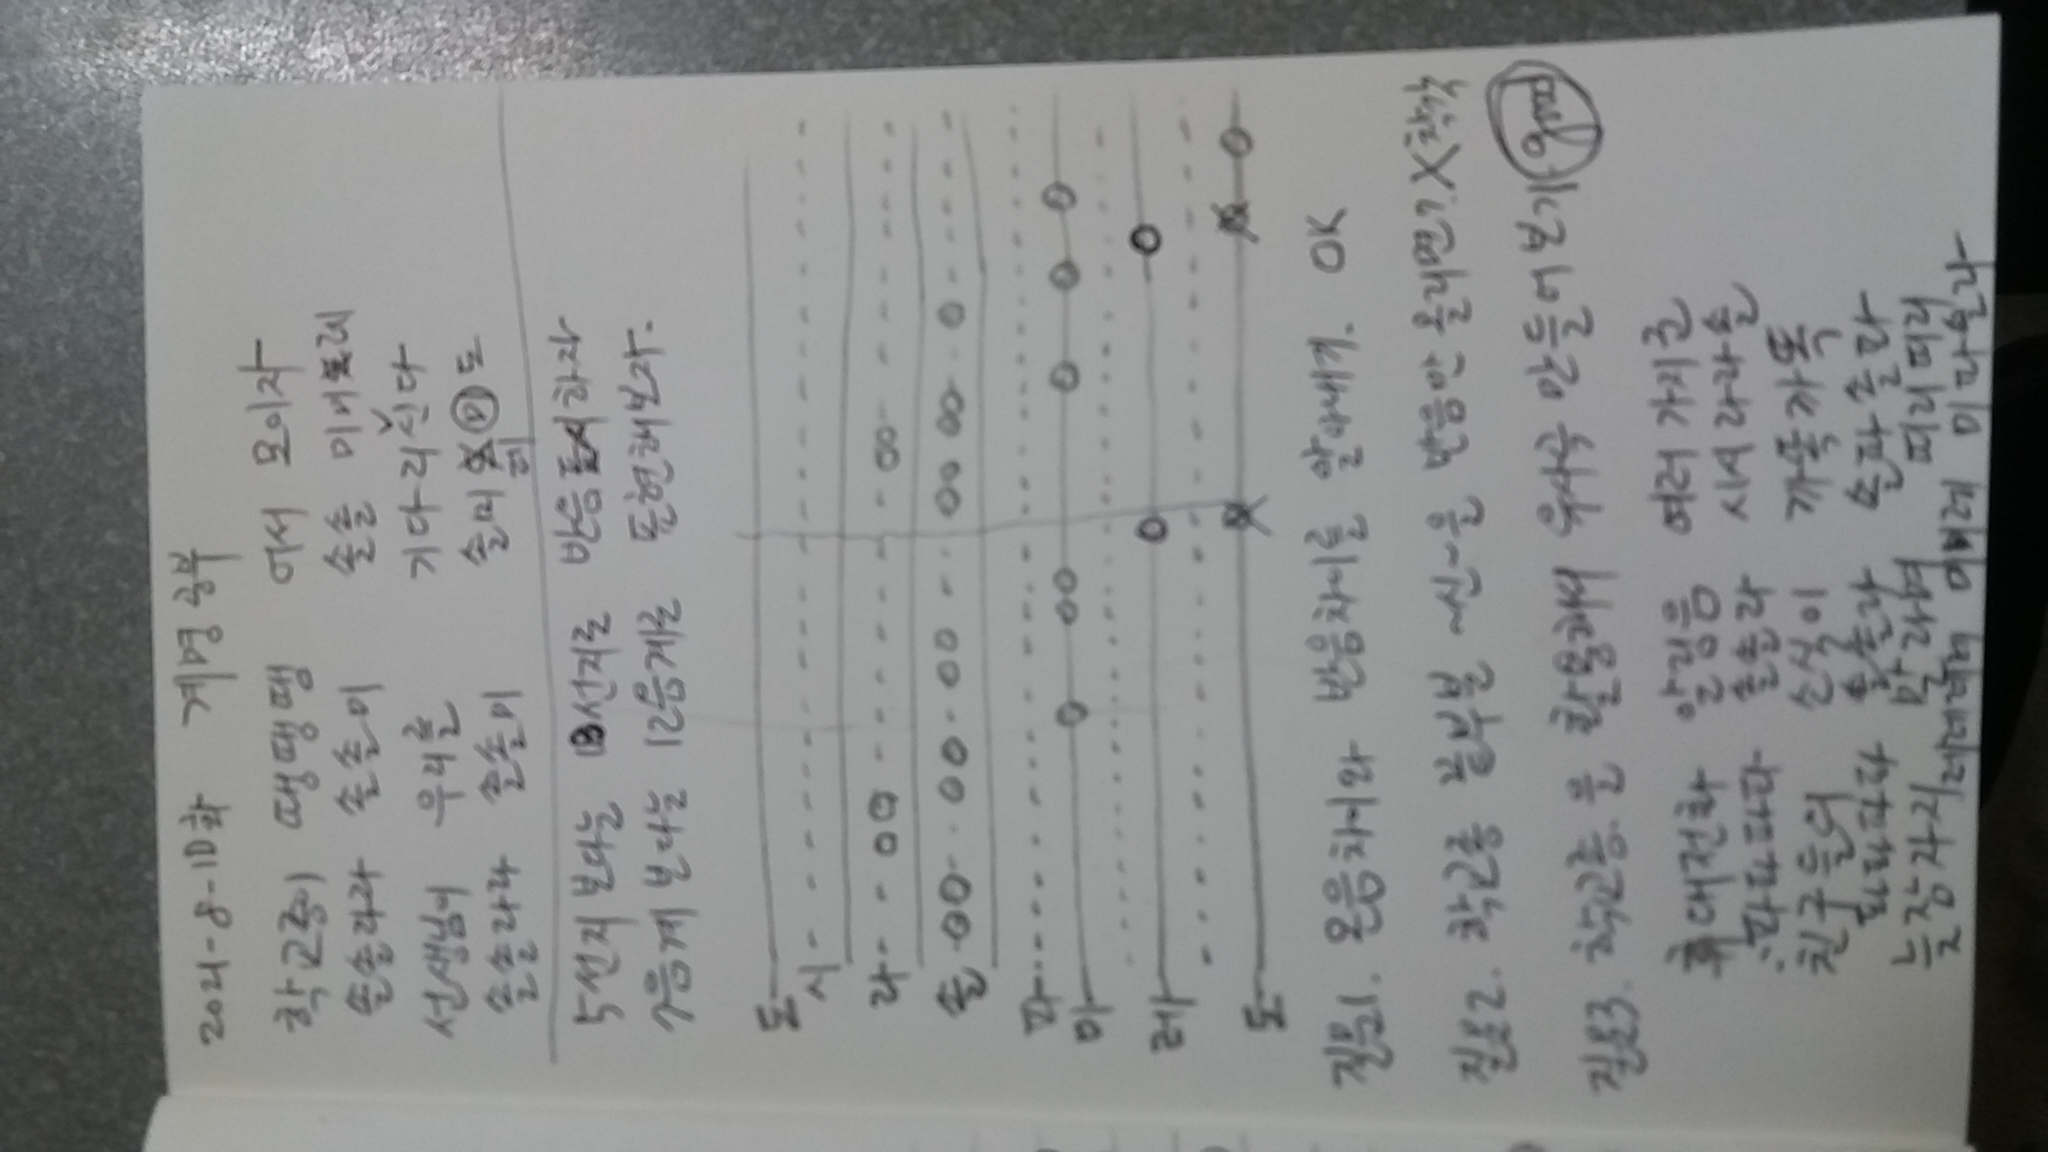 2021-8-10화 계명공부
학교종이 땡땡땡 어서 모이자
솔솔라라 솔솔미 솔솔 미미 레
선생님이 우리를 기다리신다
솔솔라라 솔솔미 솔미 미 도
레
5선지 보다는 13선지로 반음 표시하자
7음계 보다는 12음계로 표현해보자.
도
시
라
솔
파
미
레
도
질문1. 온음차이와 반음차이를 알아내기. OK
질문2. 학교종 끝부분 ~신~을 반음만 올리면? X 착각
질문3. 학교종.을 활용해서 유사곡 만들어보기 good
휴대전화 알림음 여러가지군
파파파파 솔솔라 시시라라솔
친구들의 소식이 까똑까똑
파파파파 솔솔라 솔파솔파
늦잠자지 말라며 띠리띠리
레레레레 미미레 미파솔라